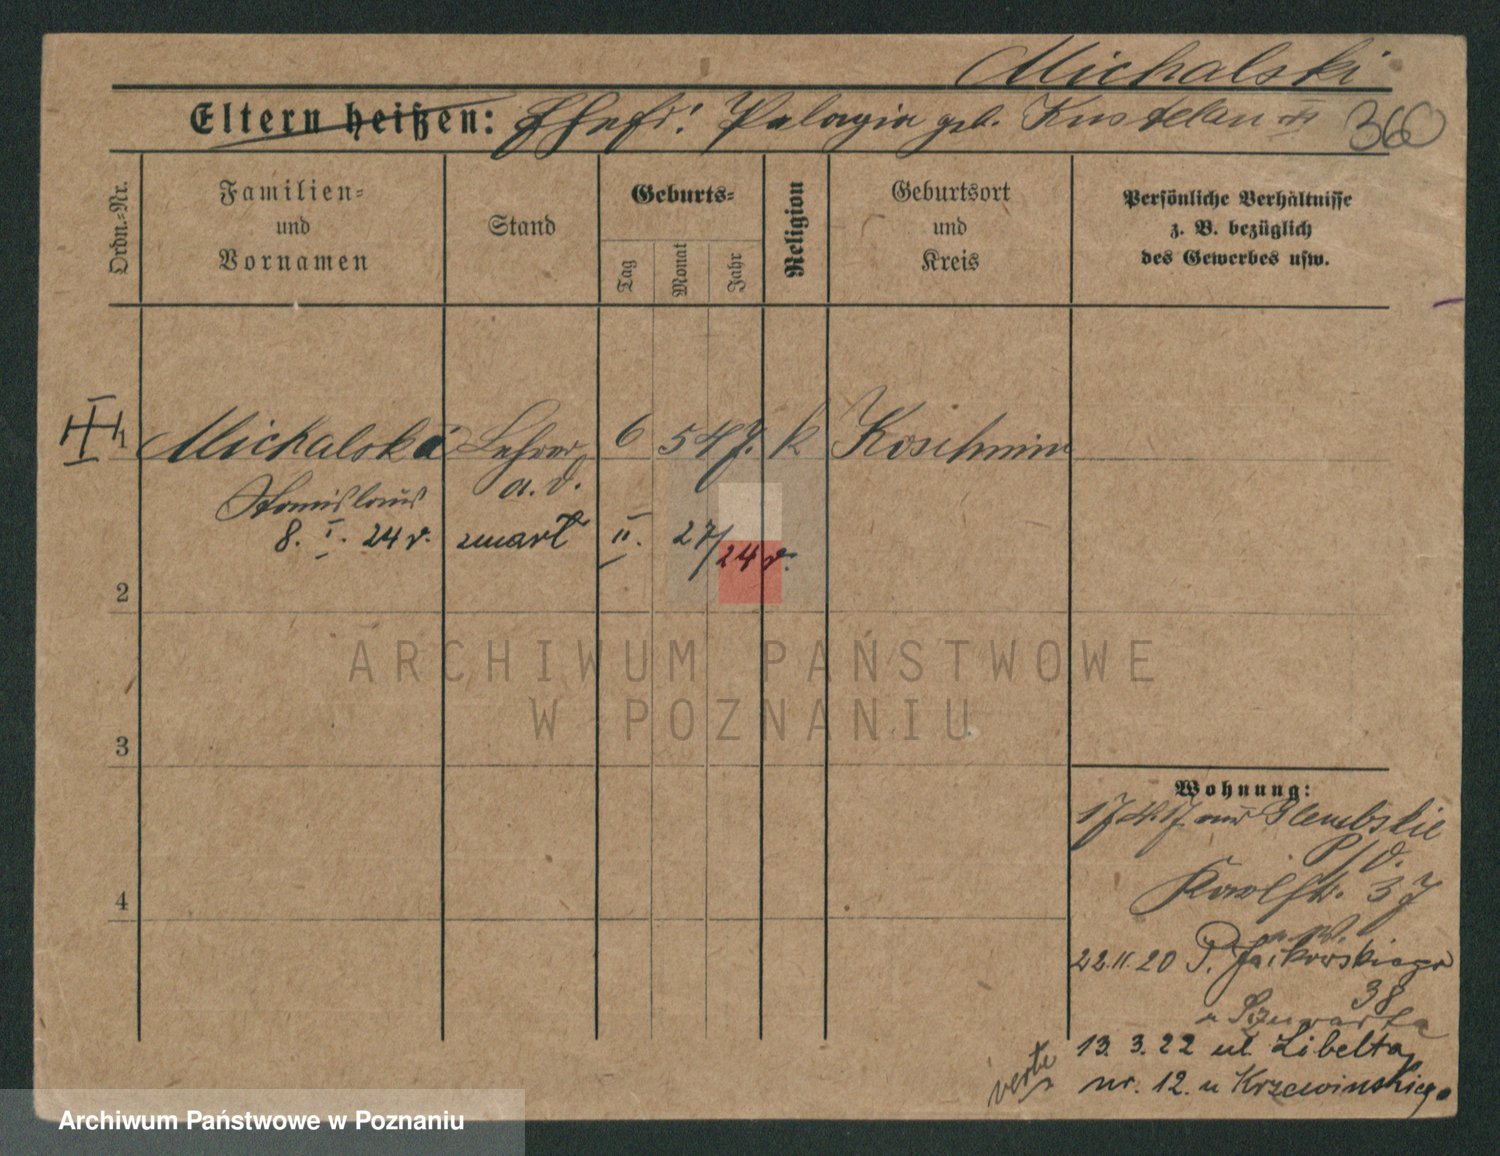 Michalski
Eltern heißen: Ehefr: Pelagia geb. Kustelan 360
Ordn.=Nr.
Familien=
und
Vornamen
Stand
Geburts=
Tag
Monat
Jahr
Religion
Geburtsort
und
Kreis
Persönliche Verhältnisse
z. B. bezüglich
des Gewerbes usw.
1 Michalski Lehrer 6 5 47. k Koschmin
Stanislaus a. D.
8. I. 24 r. zmarł II. 27/24 r.
2
3
4
Wohnung:
17.4.17 aus
P/O.
Karlstr. 37
22.11.20 P. Jackowskiego
38
u Szuwarta
13. 3. 22 ul. Libelta
nr. 12. u Krzewinskiego
verte
ARCHIWUM PAŃSTWOWE
W POZNANIU
Archiwum Państwowe w Poznaniu